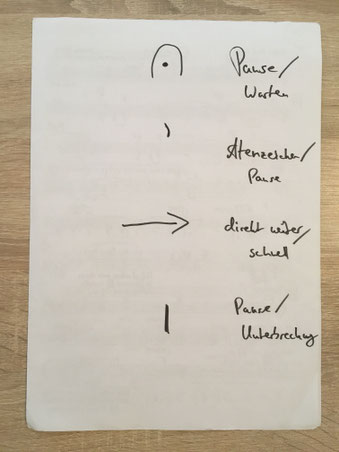 Pause/
Warten
Atemzeichen/
Pause
direkt weiter/
schnell
Pause/
Unterbrechung